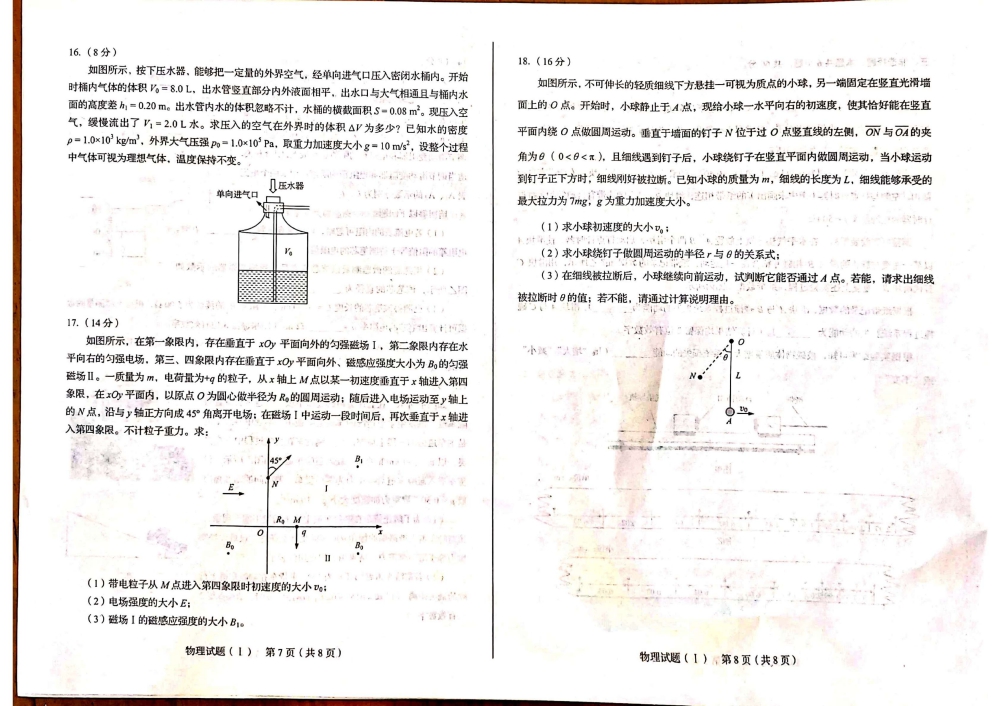 16.（8分）
如图所示，按下压水器，能够把一定量的外界空气，经单向进气口压入密闭水桶内。开始
时桶内气体的体积 V₀ = 8.0 L，出水管竖直部分内外液面相平，出水口与大气相通且与桶内水
面的高度差 h₁ = 0.20 m。出水管内水的体积忽略不计，水桶的横截面积 S = 0.08 m²。现压入空
气，缓慢流出了 V₁ = 2.0 L 水。求压入的空气在外界时的体积 ΔV 为多少？已知水的密度
ρ = 1.0×10³ kg/m³，外界大气压强 p₀ = 1.0×10⁵ Pa，取重力加速度大小 g = 10 m/s²，设整个过程
中气体可视为理想气体，温度保持不变。
压水器
单向进气口
V₀
17.（14分）
如图所示，在第一象限内，存在垂直于 xOy 平面向外的匀强磁场Ⅰ，第二象限内存在水
平向右的匀强电场，第三、四象限内存在垂直于 xOy 平面向外、磁感应强度大小为 B₀ 的匀强
磁场Ⅱ。一质量为 m，电荷量为+q 的粒子，从 x 轴上 M 点以某一初速度垂直于 x 轴进入第四
象限，在 xOy 平面内，以原点 O 为圆心做半径为 R₀ 的圆周运动；随后进入电场运动至 y 轴上
的 N 点，沿与 y 轴正方向成 45° 角离开电场；在磁场Ⅰ中运动一段时间后，再次垂直于 x 轴进
入第四象限。不计粒子重力。求：
y
45°
B₁
N
E
Ⅰ
R₀ M
O
q
x
B₀
B₀
Ⅱ
（1）带电粒子从 M 点进入第四象限时初速度的大小 v₀；
（2）电场强度的大小 E；
（3）磁场Ⅰ的磁感应强度的大小 B₁。
物理试题（Ⅰ） 第7页（共8页）
18.（16分）
如图所示，不可伸长的轻质细线下方悬挂一可视为质点的小球，另一端固定在竖直光滑墙
面上的 O 点。开始时，小球静止于 A 点，现给小球一水平向右的初速度，使其恰好能在竖直
平面内绕 O 点做圆周运动。垂直于墙面的钉子 N 位于过 O 点竖直线的左侧，ON 与 OA 的夹
角为 θ（0<θ<π），且细线遇到钉子后，小球绕钉子在竖直平面内做圆周运动，当小球运动
到钉子正下方时，细线刚好被拉断。已知小球的质量为 m，细线的长度为 L，细线能够承受的
最大拉力为 7mg，g 为重力加速度大小。
（1）求小球初速度的大小 v₀；
（2）求小球绕钉子做圆周运动的半径 r 与 θ 的关系式；
（3）在细线被拉断后，小球继续向前运动，试判断它能否通过 A 点。若能，请求出细线
被拉断时 θ 的值；若不能，请通过计算说明理由。
O
θ
N
L
v₀
A
物理试题（Ⅰ） 第8页（共8页）